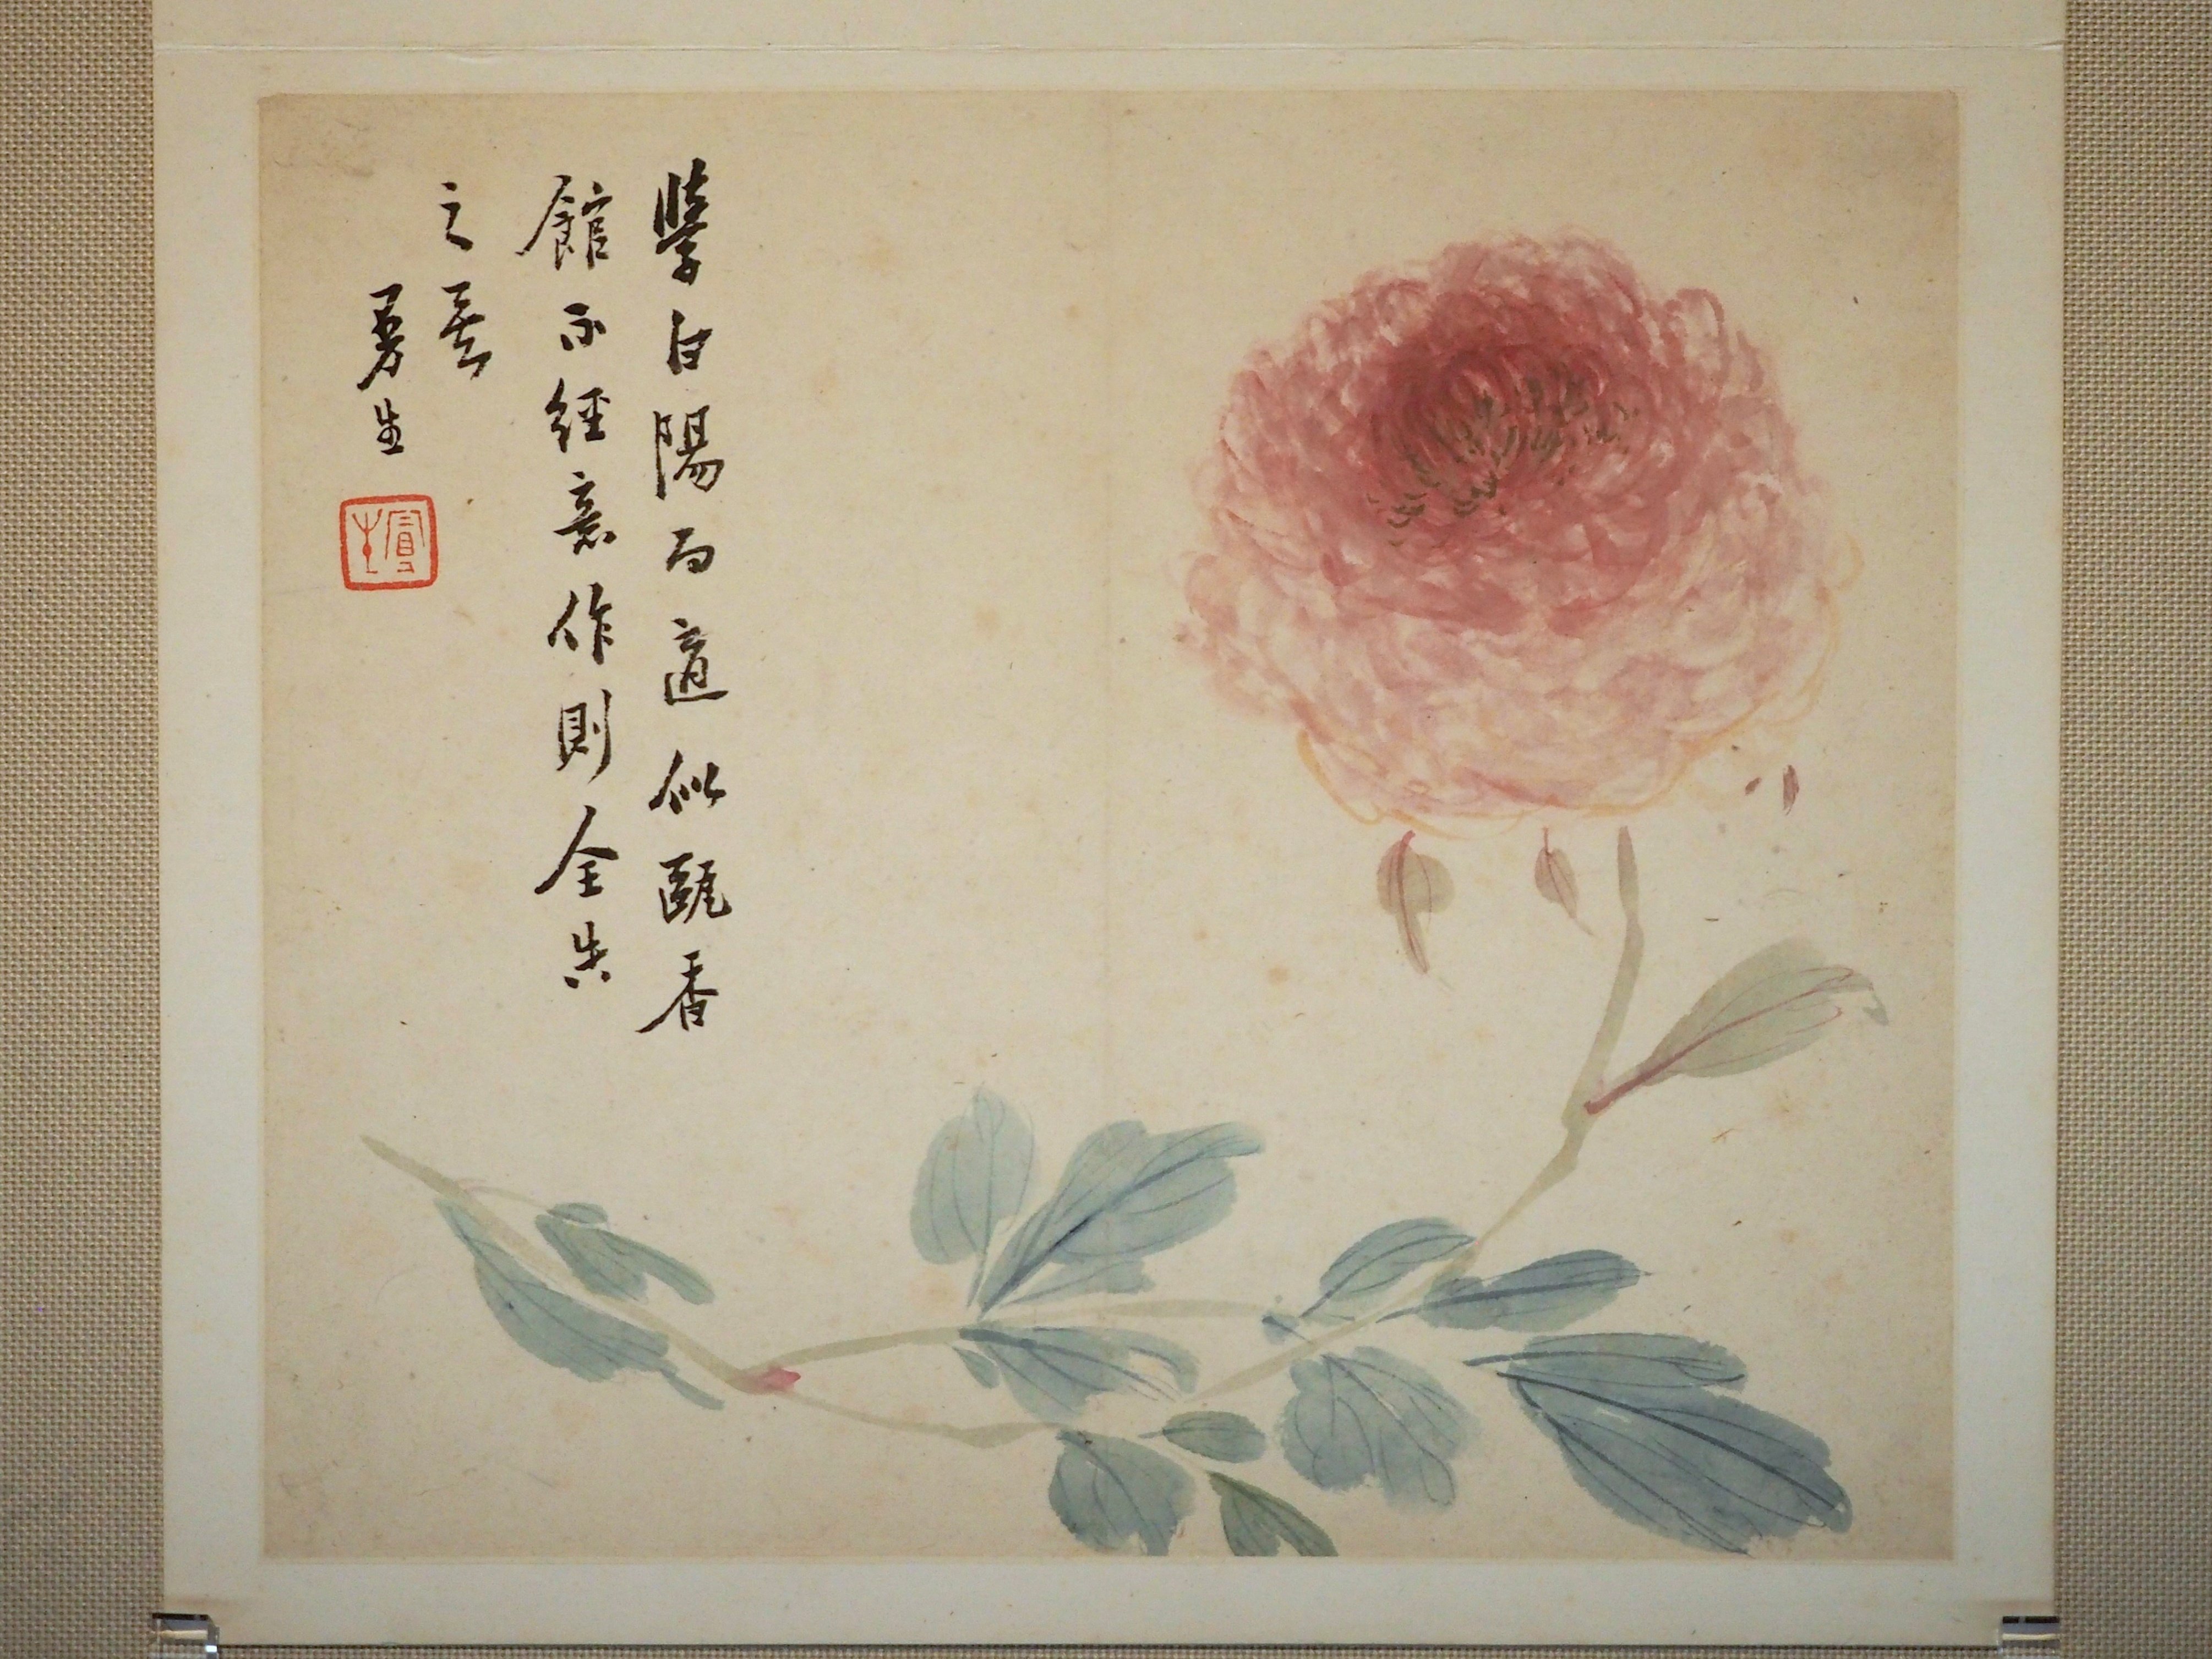 學白陽而適似甌香
館不經意作則全失
之矣
曼生
曼生